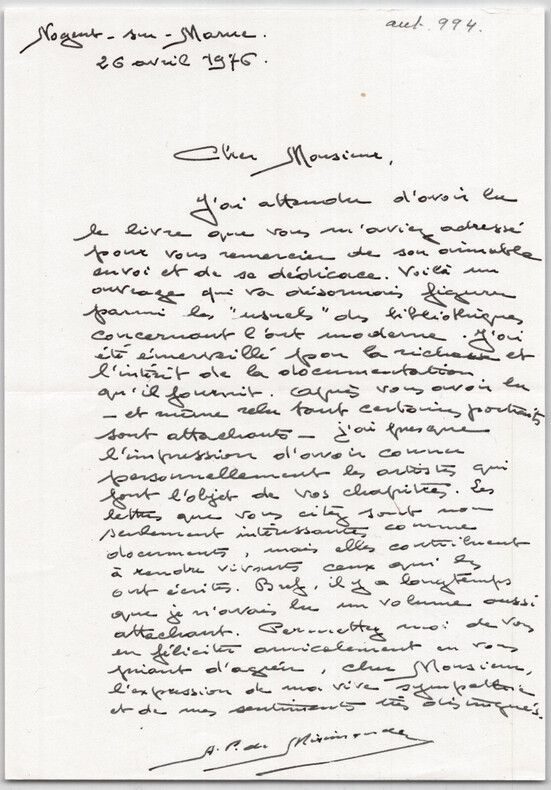 aut. 994.
Nogent-sur-Marne.
26 avril 1976.
Cher Monsieur,
J'ai attendu d'avoir lu
le livre que vous m'aviez adressé
pour vous remercier de son aimable
envoi et de sa dédicace. Voilà un
ouvrage qui va désormais figurer
parmi les "usuels" des bibliothèques
concernant l'art moderne. J'ai
été émerveillé par la richesse et
l'intérêt de la documentation
qu'il fournit. Après vous avoir lu
- et même relu tant certains portraits
sont attachants - j'ai presque
l'impression d'avoir connu
personnellement les artistes qui
font l'objet de vos chapitres. Les
lettres que vous citez sont non
seulement intéressantes comme
documents, mais elles contribuent
à rendre vivants ceux qui les
ont écrites. Bref, il y a longtemps
que je n'avais lu un volume aussi
attachant. Permettez moi de vous
en féliciter amicalement en vous
priant d'agréer, cher Monsieur,
l'expression de ma vive sympathie
et de mes sentiments très distingués.